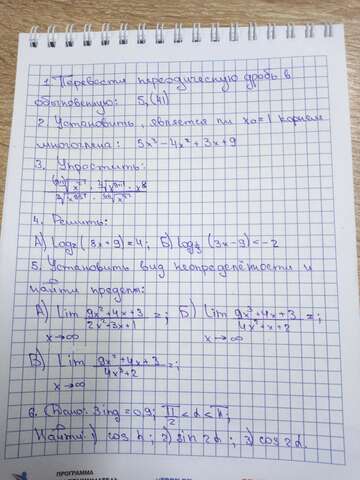 1. Перевести переодическую дробь в
обыкновенную: 5,(41)
2. Установить, является ли x₀=1 корнем
многочлена: 5x³-4x²+3x+9
3. Упростить:
4. Решить:
А) log₂(3x+9)=4; Б) log (3x-9)=-2
5. Установить вид неопределённости и
найти предел:
А) lim 9x²+4x+3 / 2x²+3x+1 =; Б) lim 9x²+4x+3 / 4x³+x+2 =;
x→∞ x→∞
В) lim 9x³+4x+3 / 4x²+2 =;
x→∞
6. Дано: sinα=0,9; π/2<α<π;
Найти: 1) cos ; 2) sin2α; 3) cos2α.
ПРОГРАММА